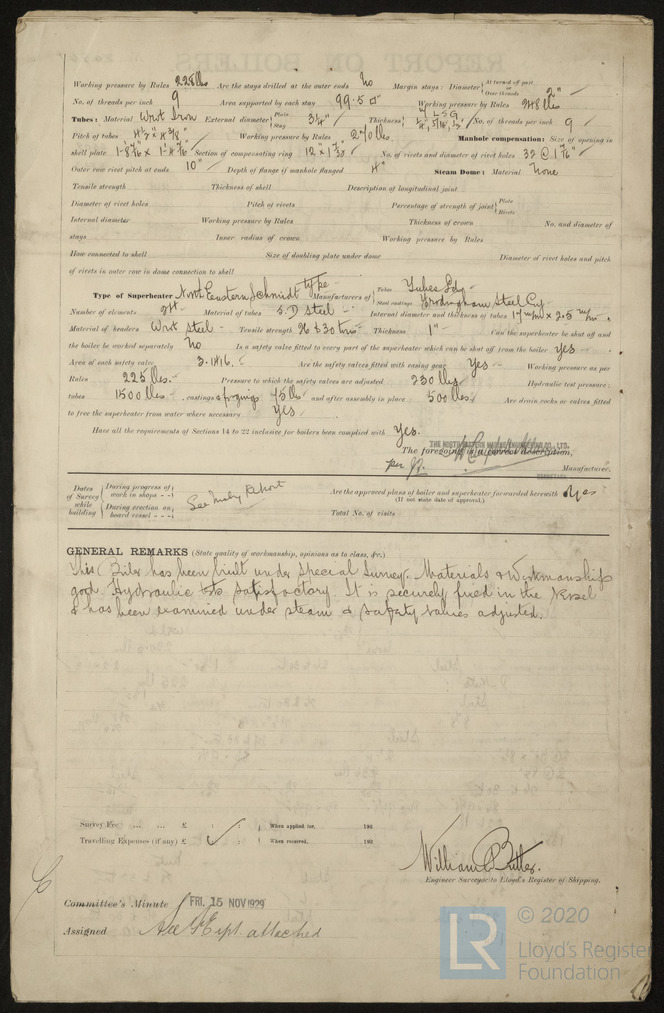 Working pressure by Rules 225 lbs Are the stays drilled at the outer ends No Margin stays: Diameter { At turned off part, or Over threads 2"
No. of threads per inch 9 Area supported by each stay 99.5 □" Working pressure by Rules 248 lbs
Tubes: Material Wrot Iron External diameter { Plain Stay 3¼" Thickness { No. of threads per inch 9
Pitch of tubes Working pressure by Rules 240 lbs. Manhole compensation: Size of opening in
shell plate Section of compensating ring No. of rivets and diameter of rivet holes
Outer row rivet pitch at ends 10" Depth of flange if manhole flanged 4" Steam Dome: Material None
Tensile strength Thickness of shell Description of longitudinal joint
Diameter of rivet holes Pitch of rivets Percentage of strength of joint { Plate Rivets
Internal diameter Working pressure by Rules Thickness of crown No. and diameter of
stays Inner radius of crown Working pressure by Rules
How connected to shell Size of doubling plate under dome Diameter of rivet holes and pitch
of rivets in outer row in dome connection to shell
Type of Superheater North Eastern Schmidt type Manufacturers of { Tubes Tubes Ldy Steel castings Frodingham Steel Coy
Number of elements Material of tubes S.D Steel Internal diameter and thickness of tubes 17 m/m x 2.5 m/m
Material of headers Wrot Steel Tensile strength 26 to 30 tons Thickness 1" Can the superheater be shut off and
the boiler be worked separately No Is a safety valve fitted to every part of the superheater which can be shut off from the boiler yes
Area of each safety valve 3.1416 Are the safety valves fitted with easing gear Yes Working pressure as per
Rules 225 lbs. Pressure to which the safety valves are adjusted 230 lbs Hydraulic test pressure:
tubes 1500 lbs. , castings & forgings and after assembly in place 500 lbs. Are drain cocks or valves fitted
to free the superheater from water where necessary Yes
Have all the requirements of Sections 14 to 22 inclusive for boilers been complied with Yes.
THE NORTH EASTERN MARINE ENGINEERING CO., LTD.
The foregoing is a correct description,
per
SECRETARY
Manufacturer.
Dates of Survey while building { During progress of work in shops - - { During erection on board vessel - - - See Mchy Report Are the approved plans of boiler and superheater forwarded herewith Yes
(If not state date of approval.)
Total No. of visits
GENERAL REMARKS (State quality of workmanship, opinions as to class, &c.)
This Boiler has been built under Special Survey. Materials & Workmanship
good Hydraulic tests satisfactory. It is securely fixed in the Vessel
& has been examined under steam & safety valves adjusted.
Survey Fee ... ... £ : : When applied for, 192
Travelling Expenses (if any) £ : : When received, 192
William Butler.
Engineer Surveyor to Lloyd's Register of Shipping.
Committee's Minute FRI. 15 NOV 1929
Assigned See F.E. rpt. attached
LR
© 2020
Lloyd's Register
Foundation